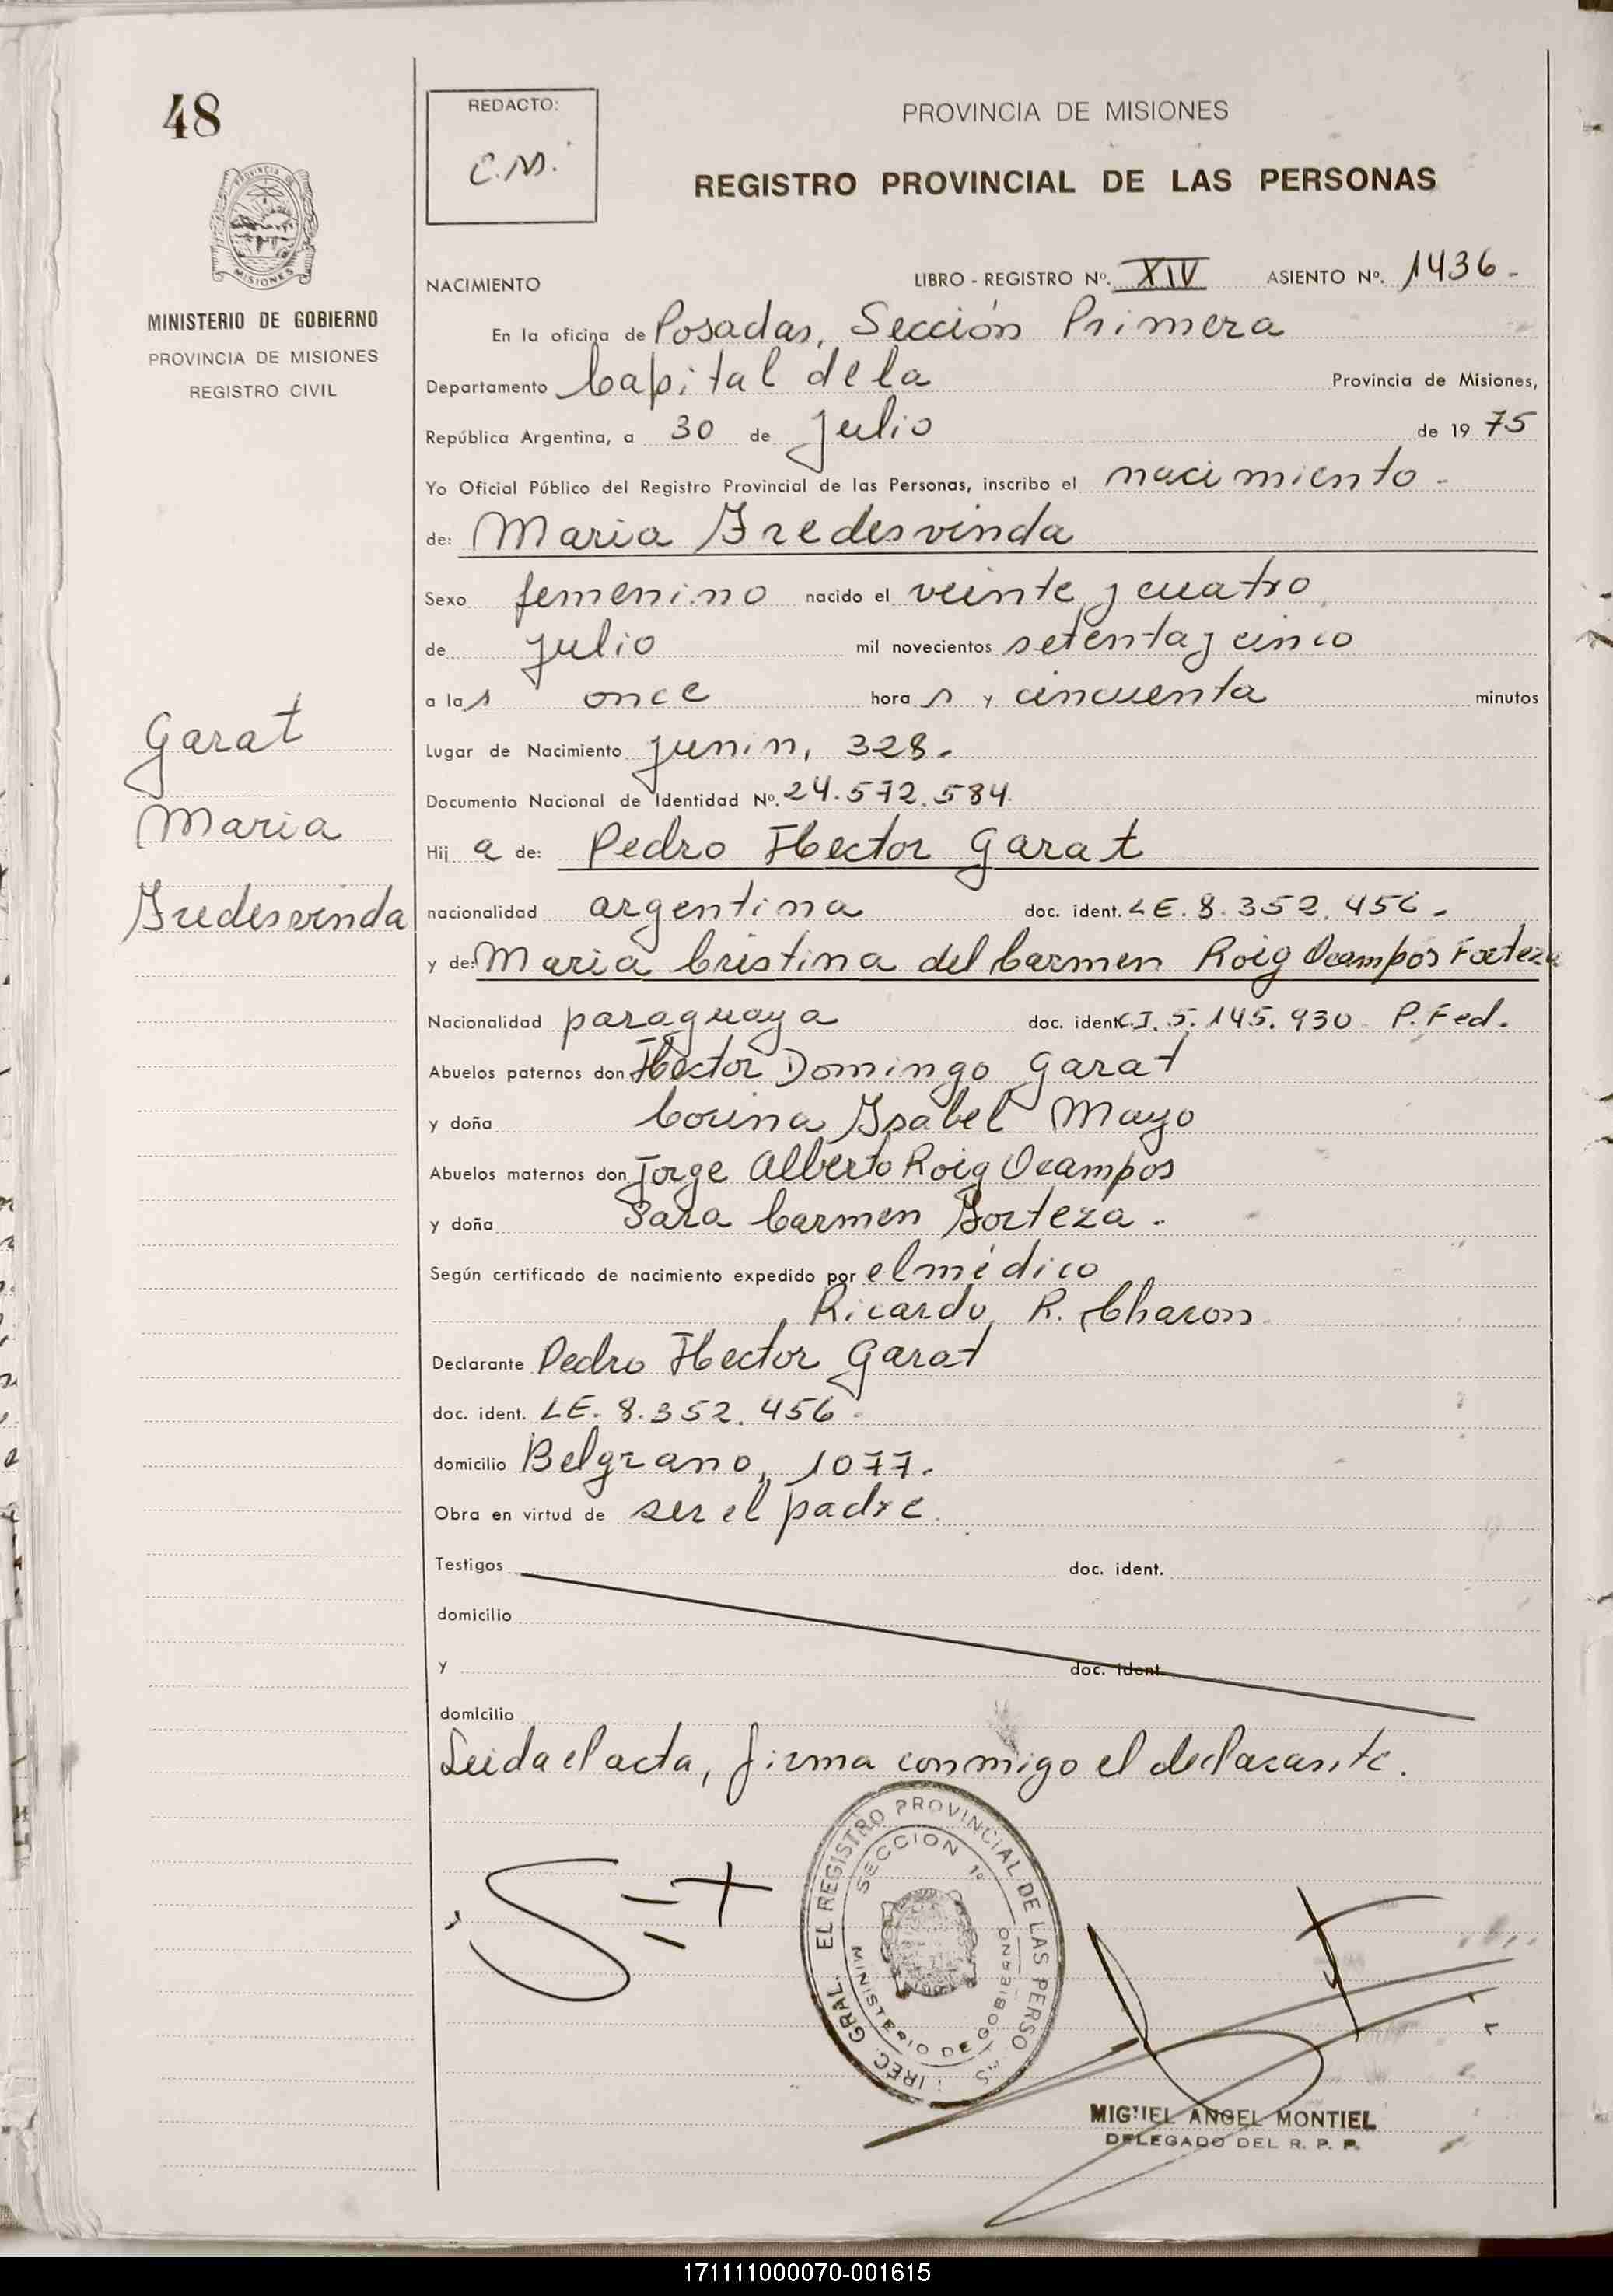 48
REDACTO:
C.M.
PROVINCIA DE MISIONES
REGISTRO PROVINCIAL DE LAS PERSONAS
MISIONES
MINISTERIO DE GOBIERNO
PROVINCIA DE MISIONES
REGISTRO CIVIL
NACIMIENTO LIBRO - REGISTRO Nº. XIV ASIENTO Nº. 1436.-
En la oficina de Posadas, Sección Primera
Departamento Capital de la Provincia de Misiones,
República Argentina, a 30 de Julio de 19 75
Yo Oficial Público del Registro Provincial de las Personas, inscribo el nacimiento.-
de: Maria Fredesvinda
Sexo femenino nacido el veinte y cuatro
de julio mil novecientos setenta y cinco
a las once horas y cincuenta minutos
Lugar de Nacimiento Junin, 328.
Documento Nacional de Identidad Nº. 24.572.584.
Hija de: Pedro Hector Garat
nacionalidad argentina doc. ident. LE. 8.352.456.
y de: Maria Cristina del Carmen Roig Ocampos Forteza
Nacionalidad paraguaya doc. ident. C.I. 5.145.930 P. Fed.
Abuelos paternos don Hector Domingo Garat
y doña Corina Isabel Mayo
Abuelos maternos don Jorge Alberto Roig Ocampos
y doña Sara Carmen Forteza.
Según certificado de nacimiento expedido por el médico
Ricardo R. Charon
Declarante Pedro Hector Garat
doc. ident. LE. 8.352.456.
domicilio Belgrano, 1077.
Obra en virtud de ser el padre.
Testigos doc. ident.
domicilio
y doc. ident.
domicilio
Leida el acta, firma conmigo el declarante.
Garat
Maria
Fredesvinda
IREC. GRAL. EL REGISTRO PROVINCIAL DE LAS PERSO
SECCION 1º
MINISTERIO DE GOBIERNO
MIGUEL ANGEL MONTIEL
DELEGADO DEL R. P. P.
171111000070-001615